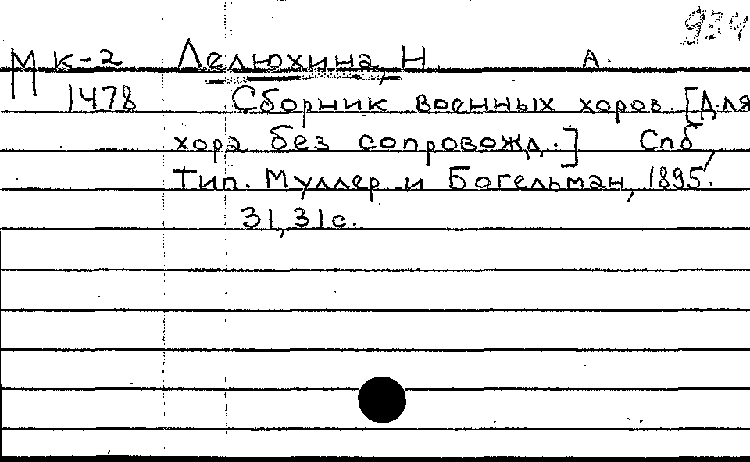 934
М К-2 Лелюхина, Н. А.
1478 Сборник военных хоров. [Для
хора без сопровожд.] Спб,
Тип. Муллер и Богельман, 1895.
31, 31 с.